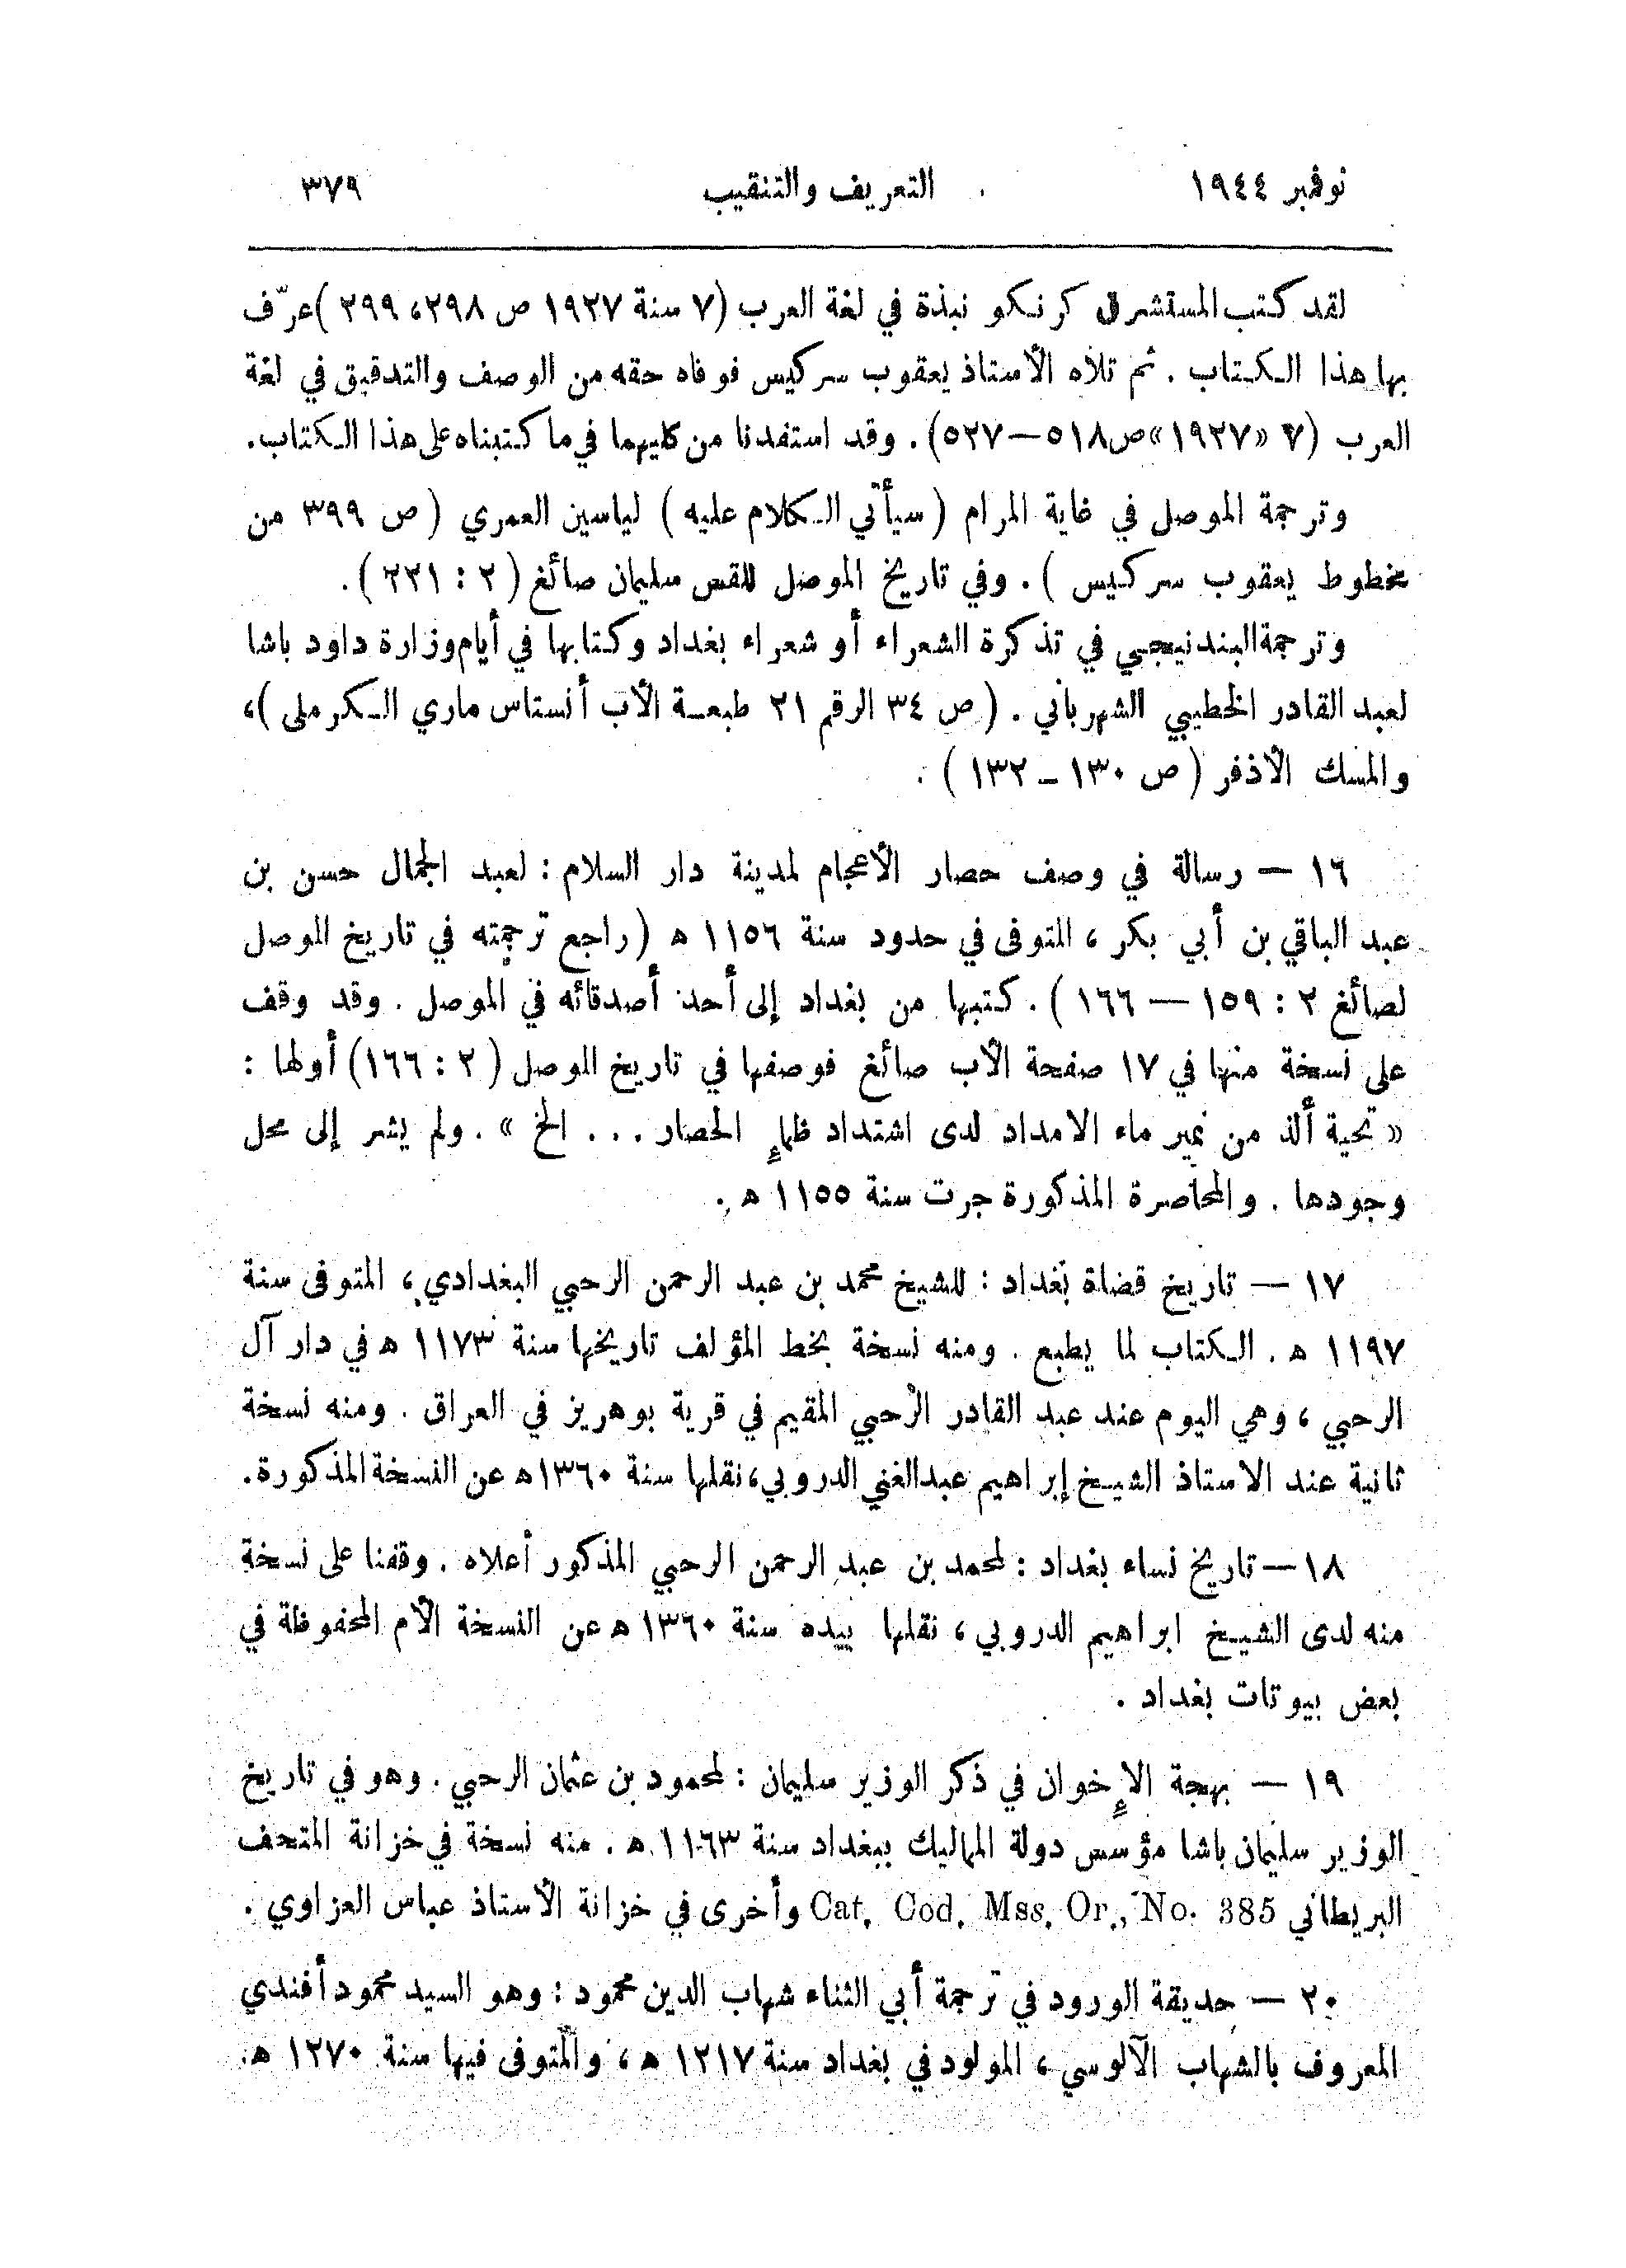 نوفمبر ١٩٤٤ التعريف والتنقيب ٣٧٩
لقد كتب المستشرق كرنكو نبذة في لغة العرب (٧ سنة ١٩٢٧ ص ٢٩٨، ٢٩٩) عرّف
بها هذا الكتاب . ثم تلاه الأستاذ يعقوب سركيس فوفاه حقه من الوصف والتدقيق في لغة
العرب (٧ «١٩٢٧» ص ٥١٨—٥٢٧) . وقد استفدنا من كليهما في ما كتبناه على هذا الكتاب.
وترجمة الموصل في غاية المرام (سيأتي الكلام عليه) لياسين العمري (ص ٣٩٩ من
مخطوط يعقوب سركيس ) . وفي تاريخ الموصل للقس سليمان صائغ (٢ : ٢٢١ ) .
وترجمة البندنيجي في تذكرة الشعراء أو شعراء بغداد وكتابها في أيام وزارة داود باشا
لعبد القادر الخطيبي الشهرباني . ( ص ٣٤ الرقم ٢١ طبعة الأب أنستاس ماري الكرملي )،
والمسك الأذفر ( ص ١٣٠ ـ ١٣٢ ) .
١٦ — رسالة في وصف حصار الأعجام لمدينة دار السلام : لعبد الجمال حسن بن
عبد الباقي بن أبي بكر ، المتوفى في حدود سنة ١١٥٦ ه (راجع ترجمته في تاريخ الموصل
لصائغ ٢ : ١٥٩ — ١٦٦ ) . كتبها من بغداد إلى أحد أصدقائه في الموصل . وقد وقف
على نسخة منها في ١٧ صفحة الأب صائغ فوصفها في تاريخ الموصل (٢ : ١٦٦) أولها :
« تحية ألذ من نمير ماء الامداد لدى اشتداد ظماءٍ الحصار ... الخ » . ولم يشر إلى محل
وجودها . والمحاصرة المذكورة جرت سنة ١١٥٥ ه .
١٧ — تاريخ قضاة بغداد : للشيخ محمد بن عبد الرحمن الرحبي البغدادي ، المتوفى سنة
١١٩٧ ه . الكتاب لما يطبع . ومنه نسخة بخط المؤلف تاريخها سنة ١١٧٣ ه في دار آل
الرحبي ، وهي اليوم عند عبد القادر الرحبي المقيم في قرية بوهريز في العراق . ومنه نسخة
ثانية عند الاستاذ الشيخ إبراهيم عبدالغني الدروبي، نقلها سنة ١٣٦٠ه عن النسخة المذكورة.
١٨ — تاريخ نساء بغداد : لمحمد بن عبد الرحمن الرحبي المذكور أعلاه . وقفنا على نسخة
منه لدى الشيخ ابراهيم الدروبي ، نقلها بيده سنة ١٣٦٠ ه عن النسخة الأم المحفوظة في
بعض بيوتات بغداد .
١٩ — بهجة الإخوان في ذكر الوزير سليمان : لمحمود بن عثمان الرحبي . وهو في تاريخ
الوزير سليمان باشا مؤسس دولة المماليك ببغداد سنة ١١٦٣ ه . منه نسخة في خزانة المتحف
البريطاني Cat. Cod. Mss. Or., No. 385 وأخرى في خزانة الأستاذ عباس العزاوي .
٢٠ — حديقة الورود في ترجمة أبي الثناء شهاب الدين محمود : وهو السيد محمود أفندي
المعروف بالشهاب الآلوسي ، المولود في بغداد سنة ١٢١٧ ه ، والمتوفى فيها سنة ١٢٧٠ ه.